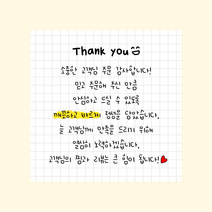 Thank you
소중한 고객님 주문 감사합니다!
믿고 주문해 주신 만큼
안심하고 드실 수 있도록
깨끗하고 바르게 정성을 담았습니다.
늘 고객님께 만족을 드리기 위해
열심히 노력하겠습니다.
고객님의 찜과 리뷰는 큰 힘이 됩니다!